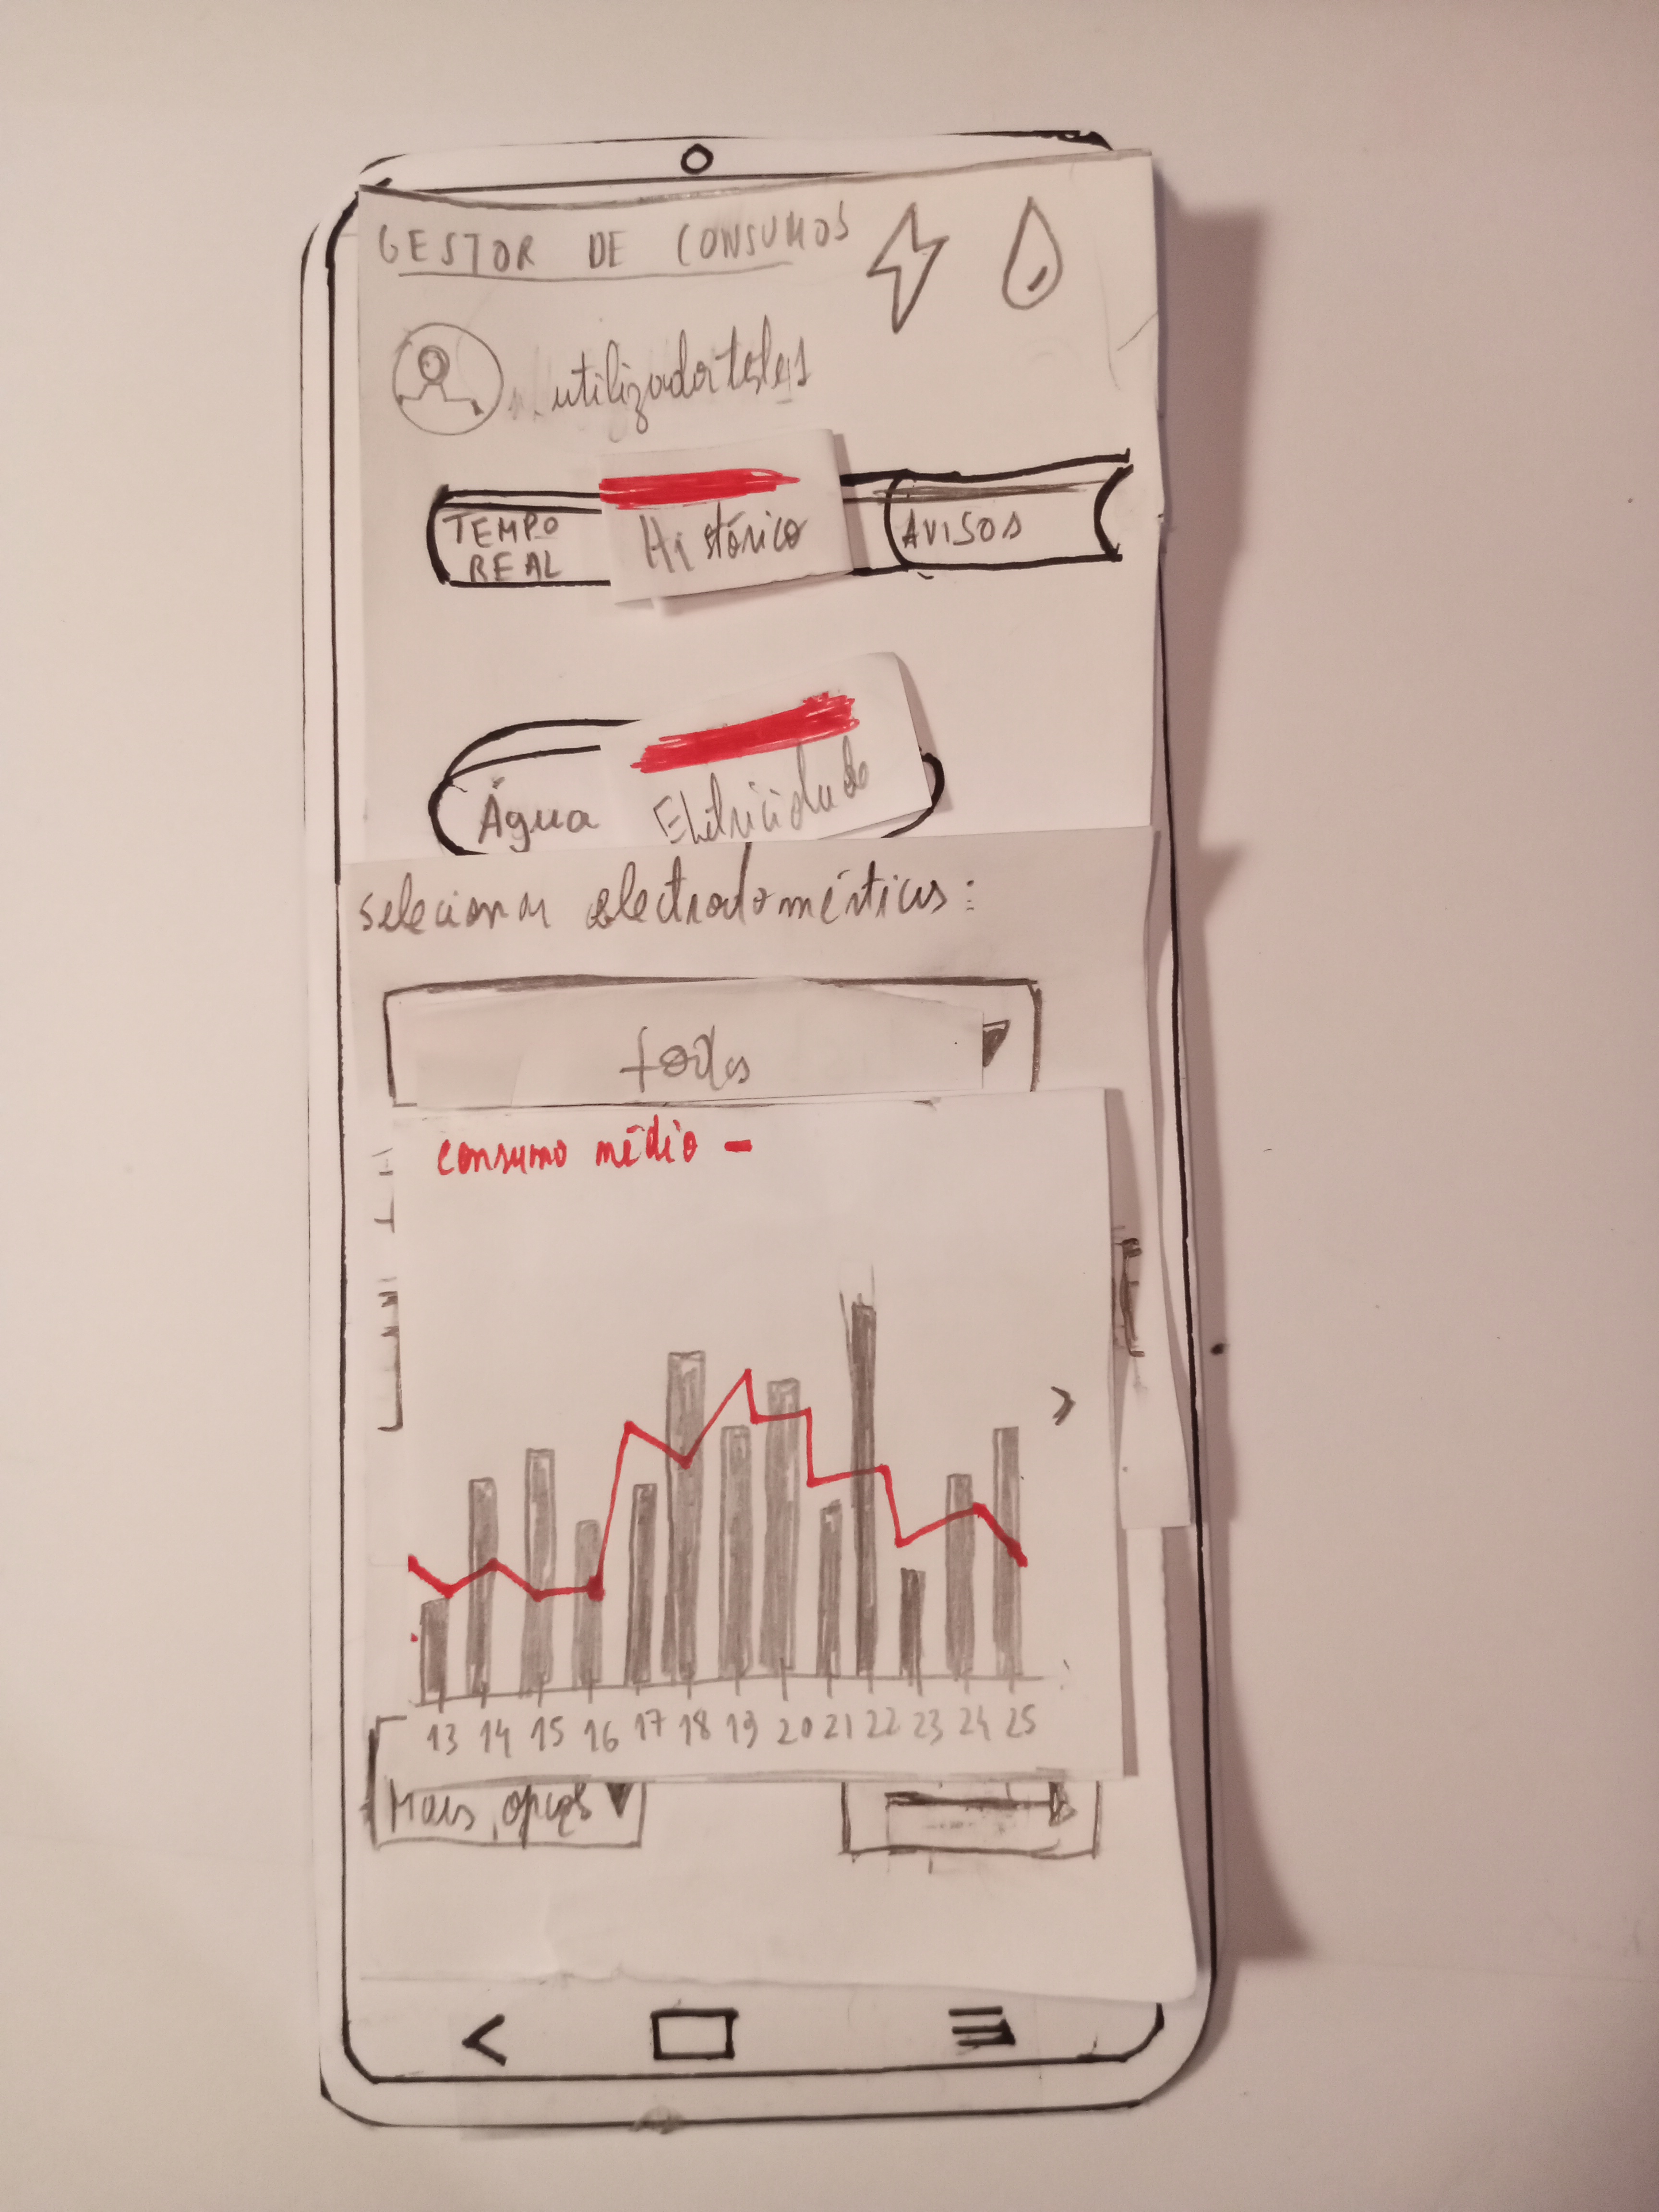 GESTOR DE CONSUMOS
utilizador teste1
TEMPO
REAL
Histórico
AVISOS
Água
Eletricidade
selecionar electrodomésticos:
todos
consumo médio -
13 14 15 16 17 18 19 20 21 22 23 24 25
Mais opções